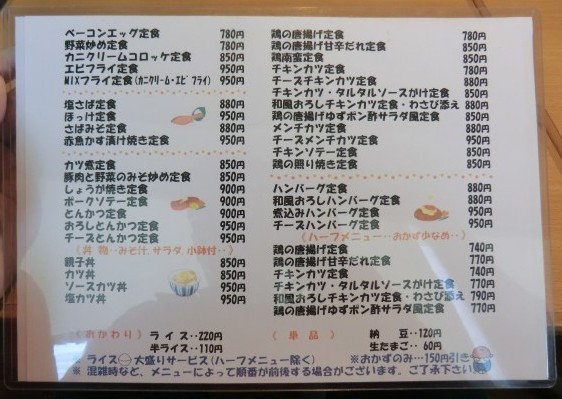 ベーコンエッグ定食 780円
野菜炒め定食 780円
カニクリームコロッケ定食 850円
エビフライ定食 950円
MIXフライ定食(カニクリーム・エビフライ) 950円
塩さば定食 880円
ほっけ定食 950円
さばみそ定食 880円
赤魚かす漬け焼き定食 950円
カツ煮定食 850円
豚肉と野菜のみそ炒め定食 850円
しょうが焼き定食 900円
ポークソテー定食 900円
とんかつ定食 900円
おろしとんかつ定食 950円
チーズとんかつ定食 950円
《丼物‥みそ汁、サラダ、小鉢付‥》
親子丼 850円
カツ丼 850円
ソースカツ丼 950円
塩カツ丼 950円
鶏の唐揚げ定食 780円
鶏の唐揚げ甘辛だれ定食 850円
鶏南蛮定食 850円
チキンカツ定食 780円
チーズチキンカツ定食 880円
チキンカツ・タルタルソースがけ定食 850円
和風おろしチキンカツ定食・わさび添え 880円
鶏の唐揚げゆずポン酢サラダ風定食 880円
メンチカツ定食 880円
チーズメンチカツ定食 950円
チキンソテー定食 850円
鶏の照り焼き定食 850円
ハンバーグ定食 880円
和風おろしハンバーグ定食 880円
煮込みハンバーグ定食 950円
チーズハンバーグ定食 950円
《ハーフメニュー‥おかず少なめ‥》
鶏の唐揚げ定食 740円
鶏の唐揚げ甘辛だれ定食 770円
チキンカツ定食 740円
チキンカツ・タルタルソースがけ定食 770円
和風おろしチキンカツ定食・わさび添え 790円
鶏の唐揚げゆずポン酢サラダ風定食 770円
《おかわり》 ライス‥220円
半ライス‥110円
《単品》 納豆‥120円
生たまご‥60円
※ ライス 大盛りサービス(ハーフメニュー除く) ※おかずのみ‥150円引き
※ 混雑時など、メニューによって順番が前後する場合がございます。ご了承下さい